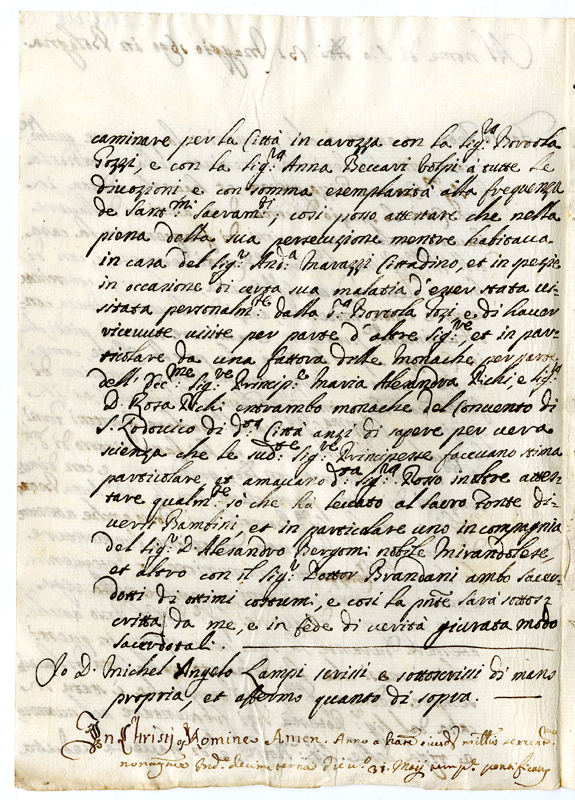 caminare per la Città in carozza con la Sig.ra Bortola
Gozzi, e con la Sig.ra Anna Beccari Volpi à tutte le
divozioni e con somma esemplarità alla frequenza
de Sant.mi Sacram.ti; così posso attestare che nella
piena della sua persecuzione mentre habitava
in casa del Sig.r And.a Marazzi Cittadino, et in spezie
in occasione di certa sua malatia d'esser stata vi-
sitata personalm.te dalla S.ra Bortola Gozi e di haver
ricevute visite per parte d'altre Sig.re, et in par-
ticolare da una fattora delle Monache per parte
dell' Ecc.me Sig.re Princip.e Maria Alesandra Pichi e Sig.ra
D. Rosa Pichi entrambe monache del Convento di
S. Lodovico di d.ta Città anzi di sapere per vera
scienza che le sud.te Sig.re Principesse facevano stima
particolare, et amavano d.ta Sig.ra Posso inoltre attes-
tare qualm.te sò che ha levato al sacro fonte di-
versi Bambini, et in particolare uno in compagnia
del Sig.r D. Alesandro Bergomi nobile Mirandolese
et altro con il Sig.r Dottor Brandani ambo Sacer-
dotti di ottimi costumi, e così la pnte sarà sottos-
critta da me, e in fede di verità giurata modo
sacerdotali.
Io D. Michel Angelo Lampi scrissi e sottoscrissi di mano
propria, et affermo quanto di sopra.
In Christi Nomine Amen. Anno a eiusd millmo
decima tertia die v.o 31 Maij pontificatus